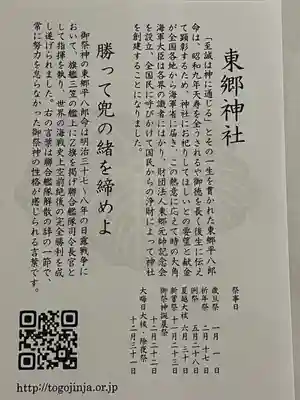 東郷神社
「至誠は神に通じる」とその一生を貫かれた東郷平八郎
命は、昭和九年天寿を全うされるや御徳を長く後生に伝え
て顕彰するため、神社にお祀りしてほしいとの要望と献金
が全国各地から海軍省に届き、この熱意に応えて時の大角
海軍大臣は各界の識者にはかり、財団法人東郷元帥記念会
を設立、全国民に呼びかけて国民からの浄財によって神社
を創建することになりました。
勝って兜の緒を締めよ
御祭神の東郷平八郎命は明治三十七・八年の日露戦争に
おいて、旗艦三笠の艦上にZ旗を掲げ聯合艦隊司令長官と
して指揮を執り、世界の海戦史上空前絶後の完全勝利を成
し遂げられました。右の言葉は聯合艦隊解散の辞の一節で、
常に努力を怠らなかった御祭神の性格が感じられる言葉です。
祭事日
歳旦祭 一月一日
祈年祭 二月十七日
例祭 五月二十八日
夏越大祓 六月三十日
新嘗祭 十一月二十三日
御祭神誕生祭 十二月二十二日
大晦日大祓・除夜祭 十二月三十一日
http://togojinja.or.jp